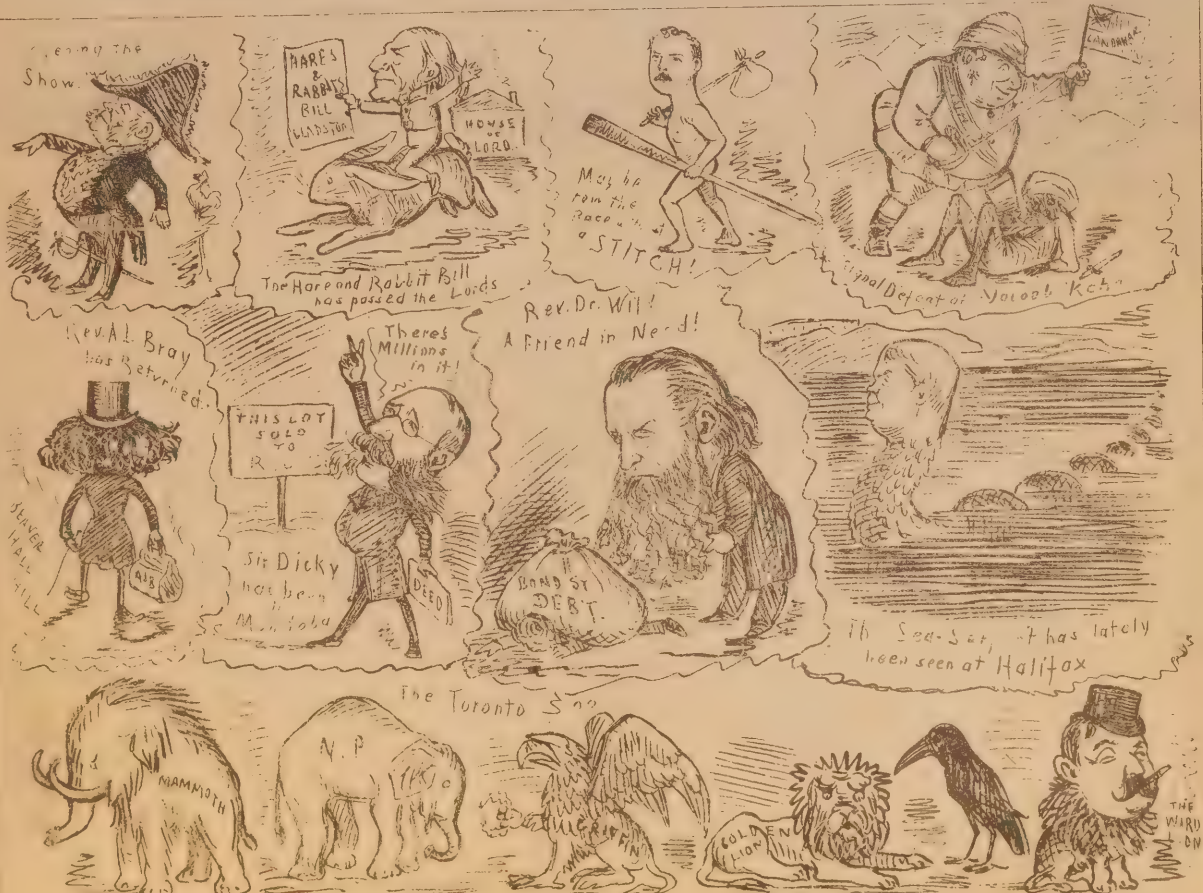 the
Show.
HARES
&
RABBITS
BILL
HOUSE
OF
LORD.
The Hare and Rabbit Bill
has passed the Lords
May he
row the
Race
a STITCH!
CANDAHAR
Defeat of Yacoob
Rev. A.J. Bray
has Returned.
BEAVER
HALL
HILL
THIS LOT
SOLD
TO
There's
Millions
in it!
Sir Dicky
has been
DEED
Rev. Dr. Wil!
A Friend in Need!
BOND ST
DEBT
has lately
been seen at Halifax
The Toronto
MAMMOTH
N P
GRIFFIN
GOLDEN
LION
THE